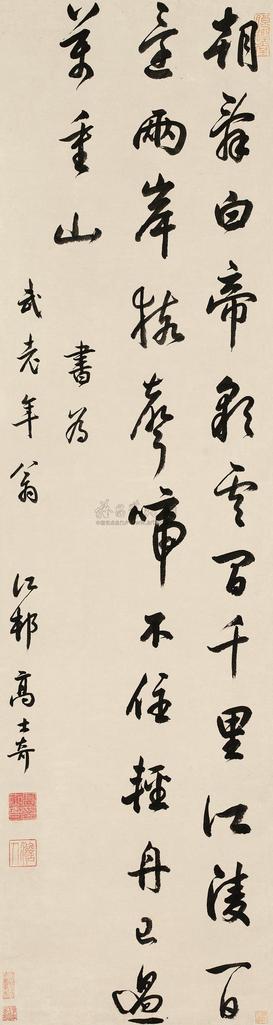 朝辭白帝彩雲間千里江陵一日
還兩岸猿聲啼不住輕舟已過
萬重山
書為
武老年翁 江邨高士奇